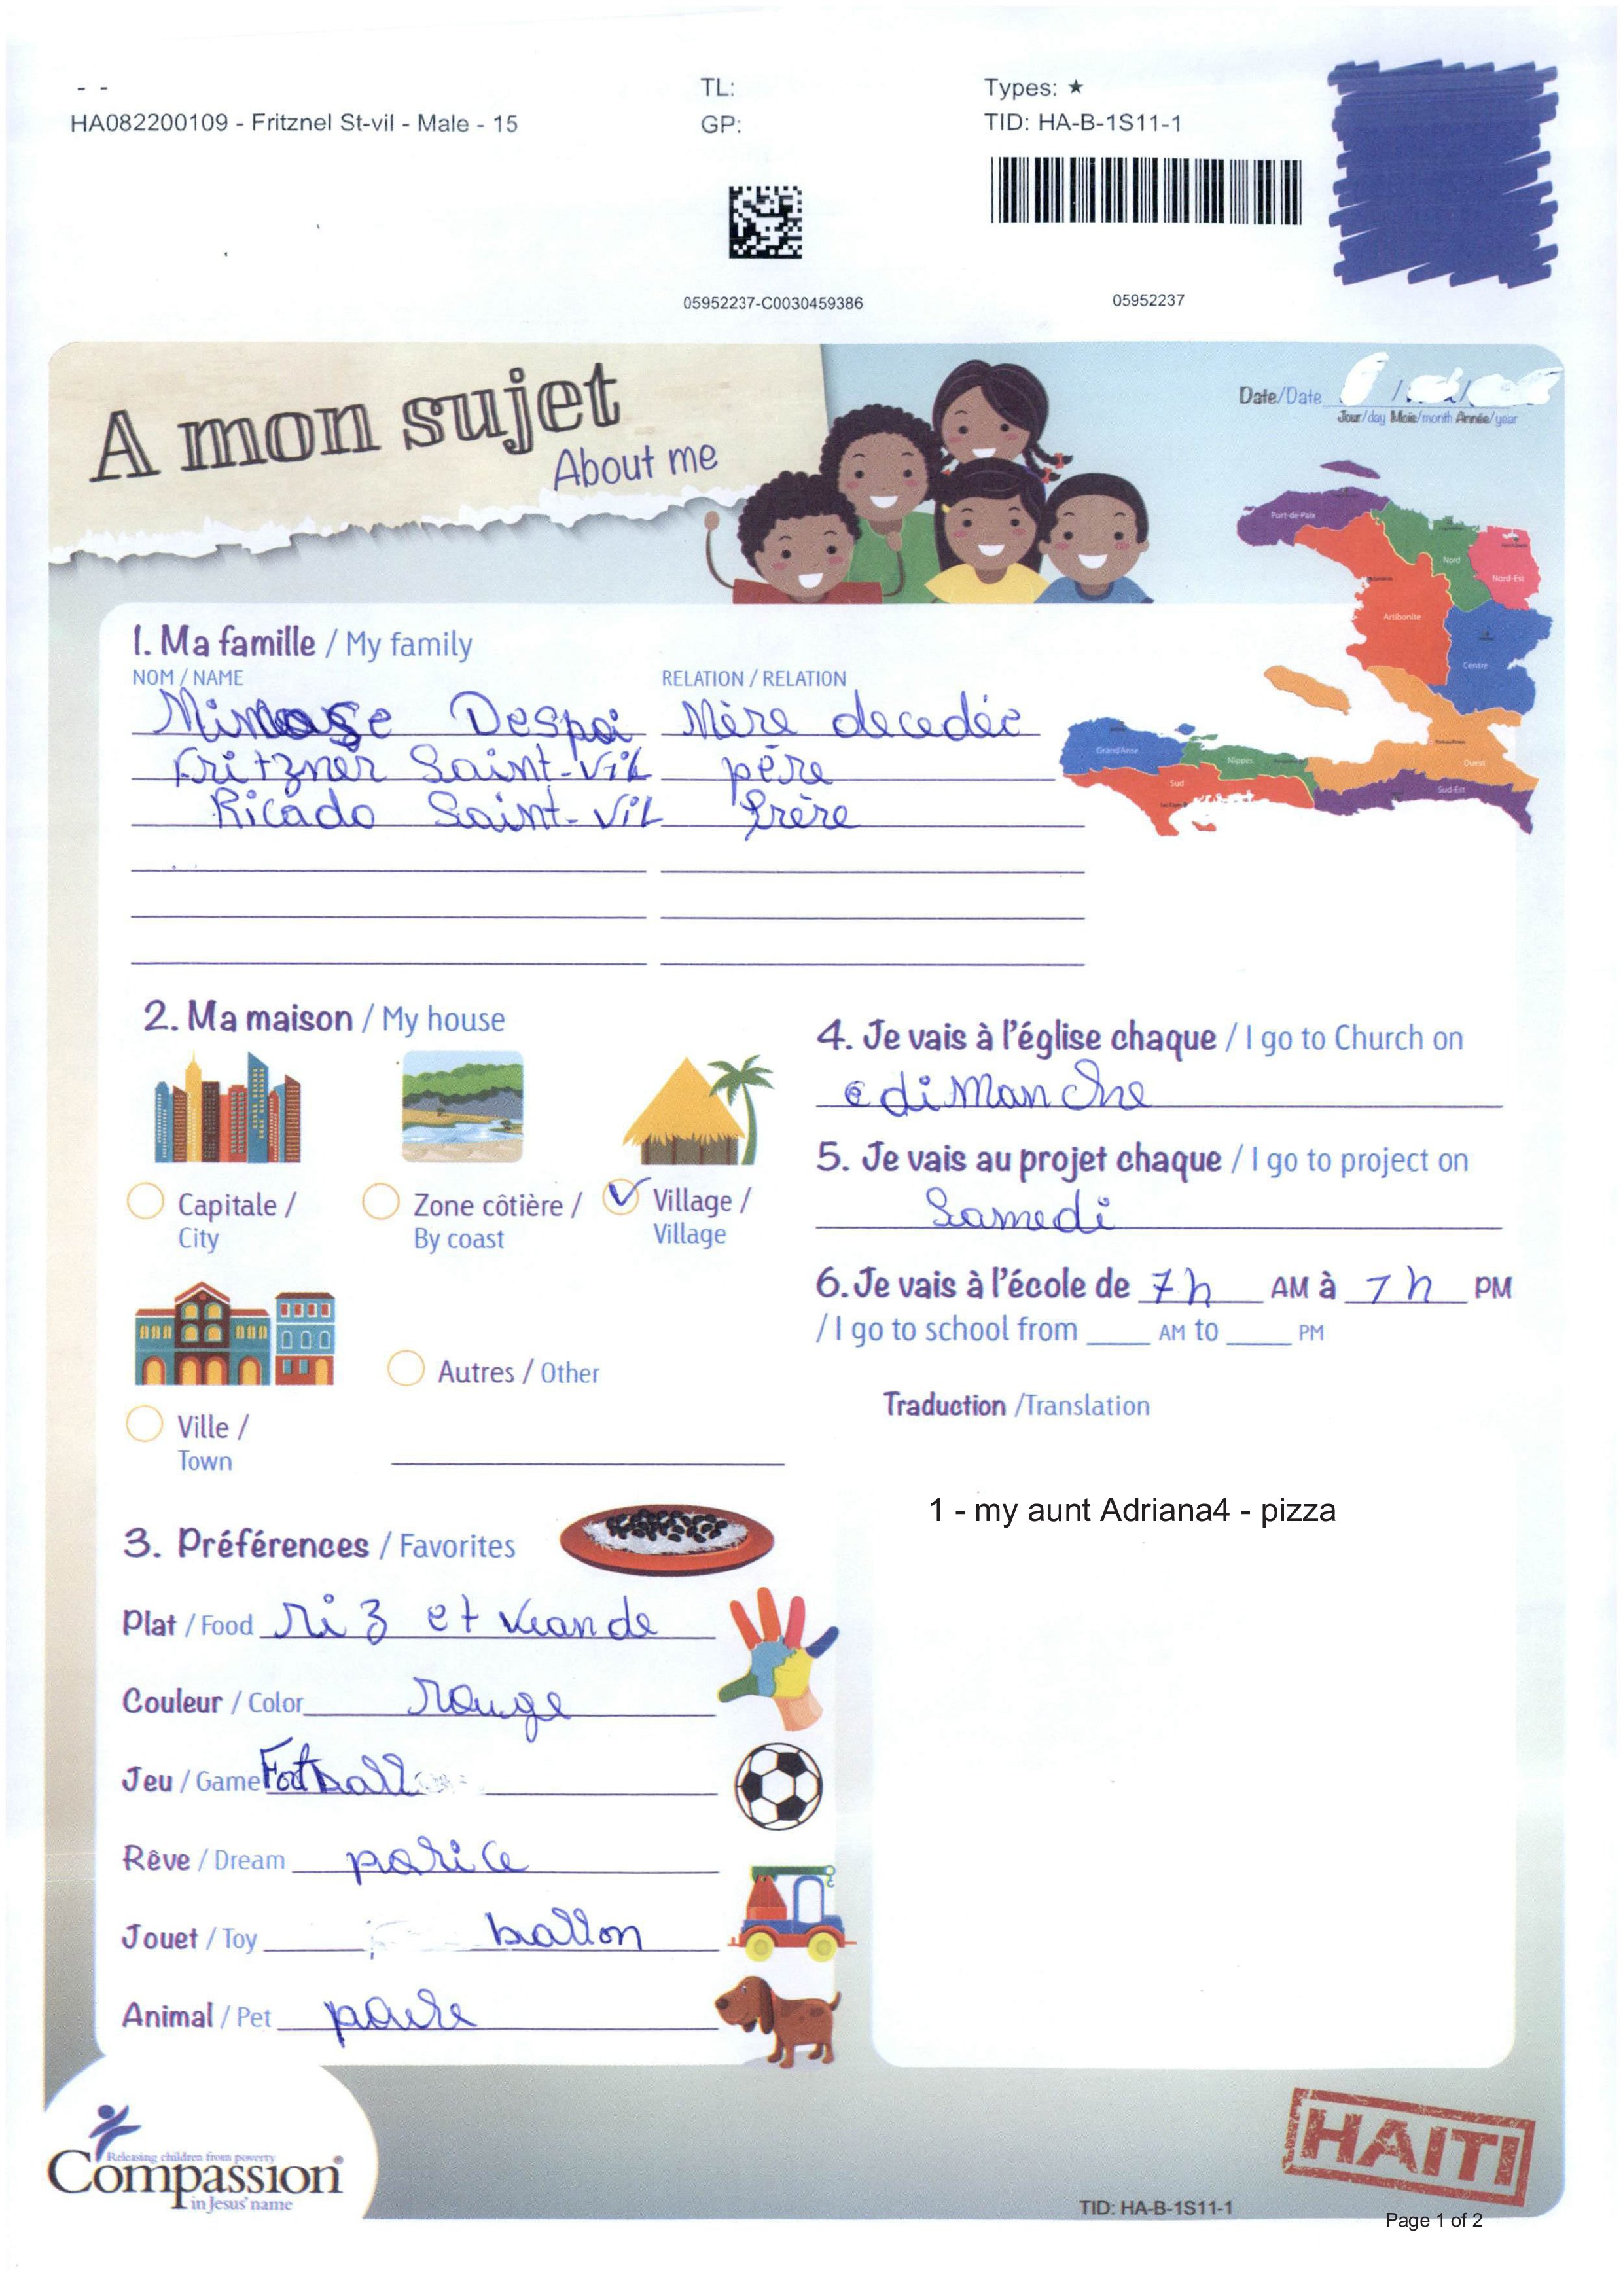 - -
HA082200109 - Fritznel St-vil - Male - 15
TL:
GP:
Types: ★
TID: HA-B-1S11-1
05952237-C0030459386
05952237
A mon sujet
About me
Date/Date / /
Jour/day Mois/month Année/year
Port-de-Paix
Nord
Nord-Est
Artibonite
Centre
Grand'Anse
Nippes
Ouest
Sud
Sud-Est
1. Ma famille / My family
NOM / NAME RELATION / RELATION
Despai Mère decedée
Fritzner Saint-Vil père
Ricado Saint-Vil frère
2. Ma maison / My house
Capitale /
City
Zone côtière /
By coast
Village /
Village
Ville /
Town
Autres / Other
3. Préférences / Favorites
Plat / Food riz et viande
Couleur / Color rouge
Jeu / Game Football
Rêve / Dream
Jouet / Toy ballon
Animal / Pet
4. Je vais à l'église chaque / I go to Church on
dimanche
5. Je vais au projet chaque / I go to project on
Samedi
6. Je vais à l'école de 7h AM à 1h PM
/ I go to school from ____ AM to ____ PM
Traduction /Translation
1 - my aunt Adriana4 - pizza
Releasing children from poverty
Compassion®
in Jesus' name
HAITI
TID: HA-B-1S11-1
Page 1 of 2